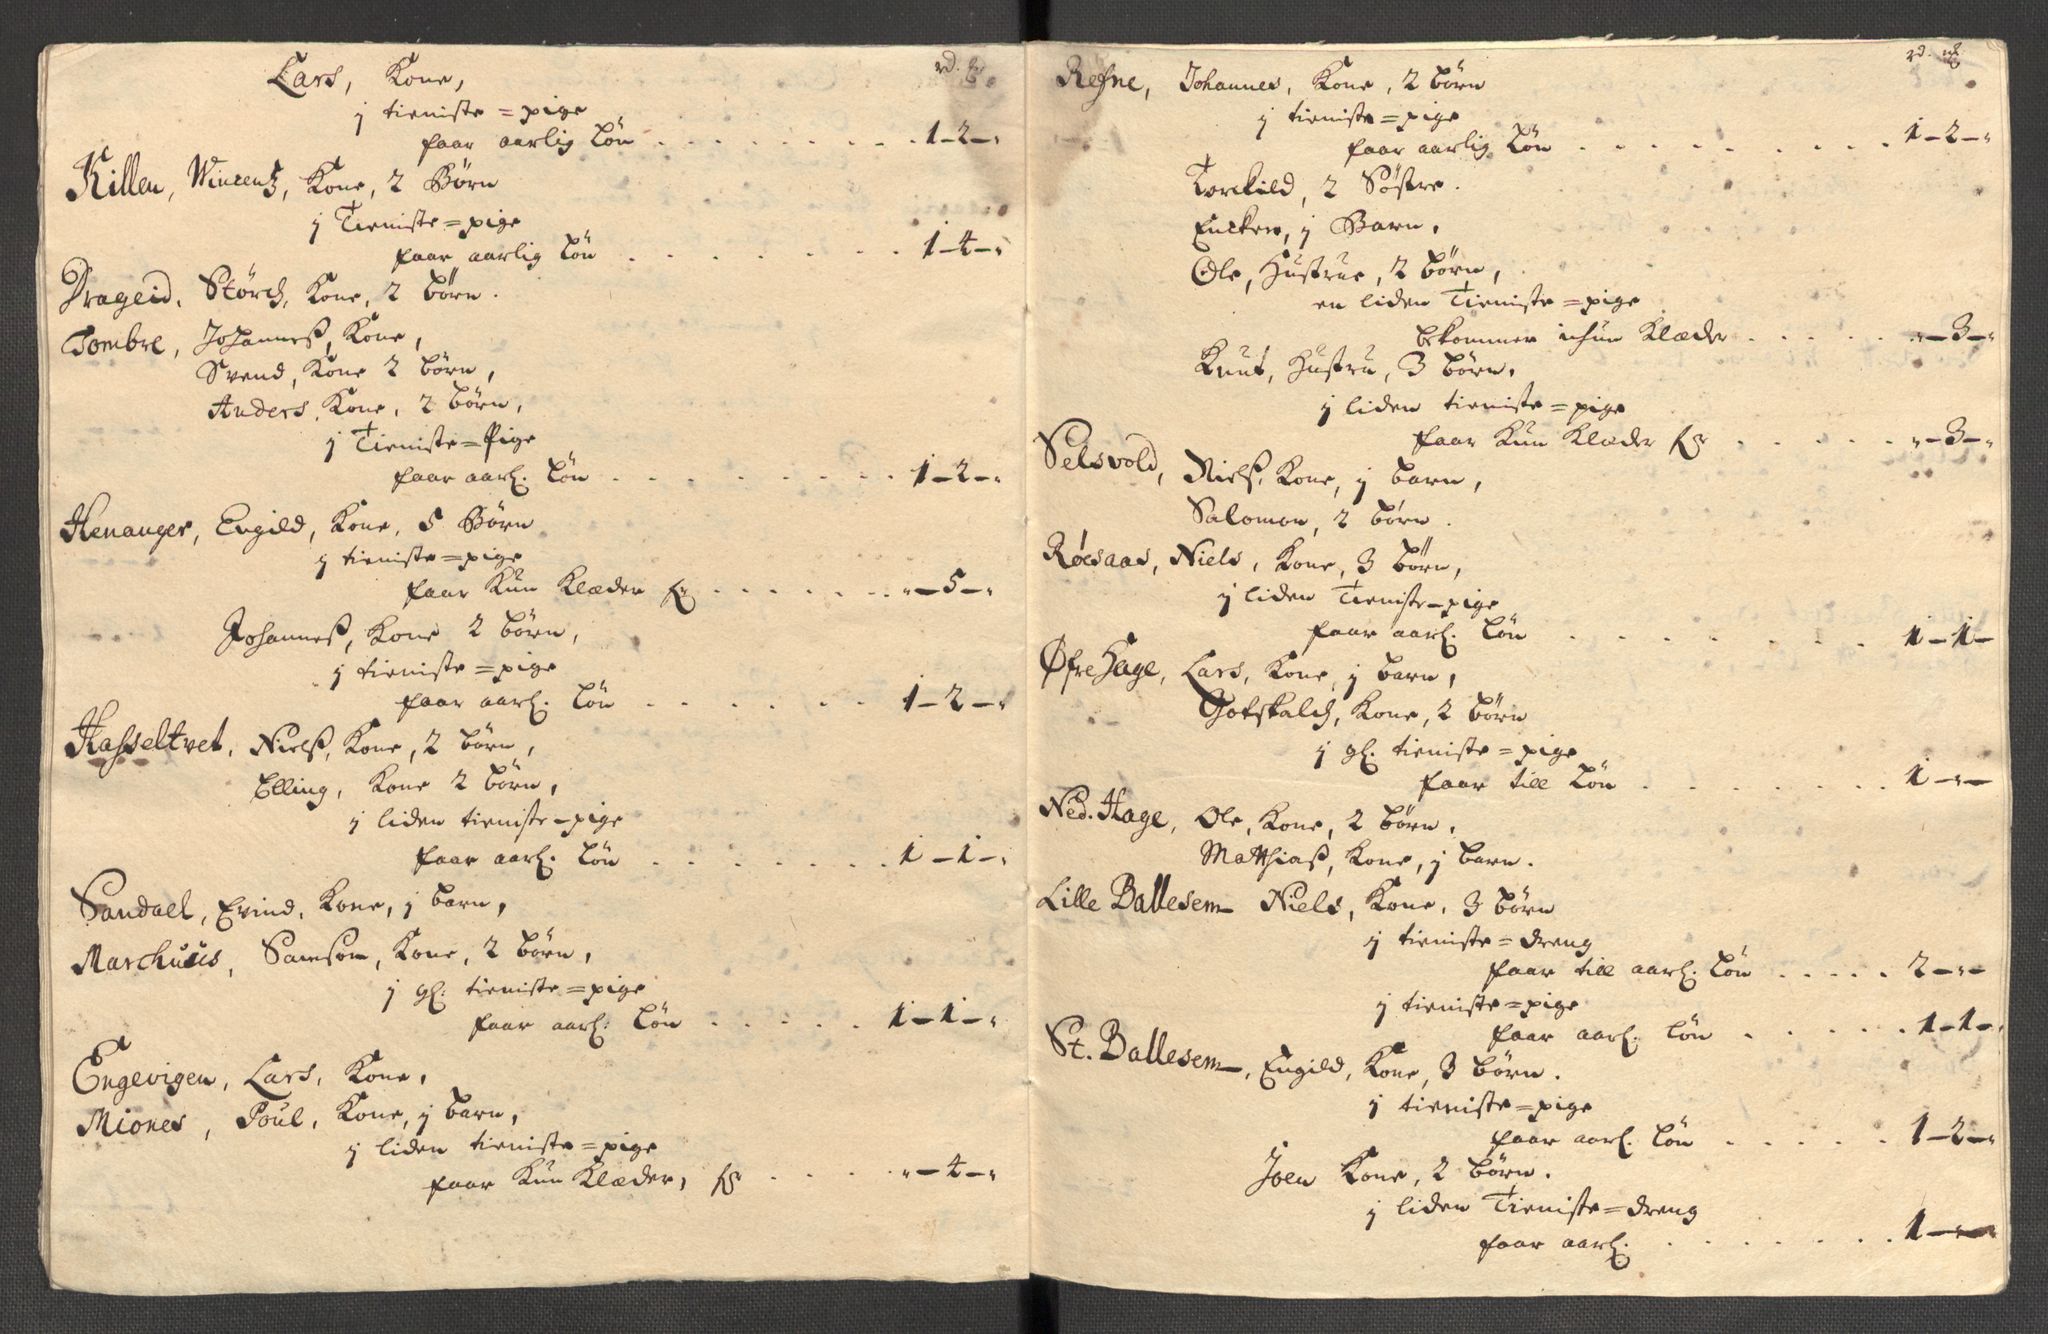 rd. ℔
Lars, Kone,
j tieniste=pige
faar aarlig Løn . . . . . . . . . 1–2–"
Killen, Wincentz, Kone, 2 Børn
j Tieniste=pige
faar aarlig Løn . . . . . . . . 1–4–"
Drageid, Störch, Kone, 2 børn.
Tombre, Johannesß, Kone,
Svend, Kone 2 børn,
Anders, Kone, 2 børn,
j Tieniste=Pige
faar aarl. Løn . . . . . . . . . 1–2–"
Henanger, Engild, Kone, 5 Børn
j tieniste=pige
faar Kun Klæder for . . . . . . . "–5–"
Johannesß, Kone 2 børn,
j tieniste=pige
faar aarl. Løn . . . . . . 1–2–"
Hasseltvet, Nielß, Kone, 2 børn,
Elling, Kone 2 børn,
j liden tieniste=pige
faar aarl. Løn . . . . . . . 1–1–"
Sandael, Evind, Kone, j barn,
Marchuus, Samson, Kone, 2 børn,
j gl: tieniste=pige
faar aarl: Løn . . . . . 1–1–"
Engevigen, Lars, Kone,
Miones, Poul, Kone, j barn,
j liden tieniste=pige
faar Kun Klæder, for . . . . "–4–"
rd. ℔
Refne, Johannes, Kone, 2 børn
j tieniste=pige
faar aarlig Løn . . . . . . . . . 1–2–"
Torckild, 2 Søstre.
Encken, j Barn,
Ole, Hustrue, 2 børn,
en liden Tieniste=pige
bekommer Klæder . . . . . "–3–"
Knut, Hustru, 3 børn,
j liden tieniste=pige
faar Kun Klæder for . . . . . "–3–"
Selsvold, Nielß, Kone, j barn,
Salomon, 2 børn.
Røesaas, Niels, Kone, 3 børn,
j liden Tieniste=pige
faar aarl. Løn . . . . . . . . 1–1–
Øfre Hage, Lars, Kone, j barn,
Gotskalch, Kone, 2 børn
j gl. tieniste=pige
faar till Løn . . . . . . . 1–"–
Ned. Hage, Ole, Kone, 2 børn,
Matthiaß, Kone, j barn.
Lille Ballesem Niels, Kone, 3 børn
j tieniste=dreng
faar till aarl. Løn . . . . . 2–"–
j tieniste=pige
faar aarl. Løn . . . . . 1–1–"
St. Ballesem, Engild, Kone, 3 børn.
j tieniste=pige
faar aarl. Løn . . . . . 1–2–"
Joen Kone, 2 børn.
j liden Tieniste=dreng
faar aarl. . . . . . . . 1–"–"